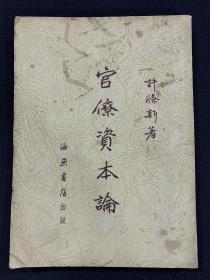 許滌新著
官僚資本論
海燕書店出版